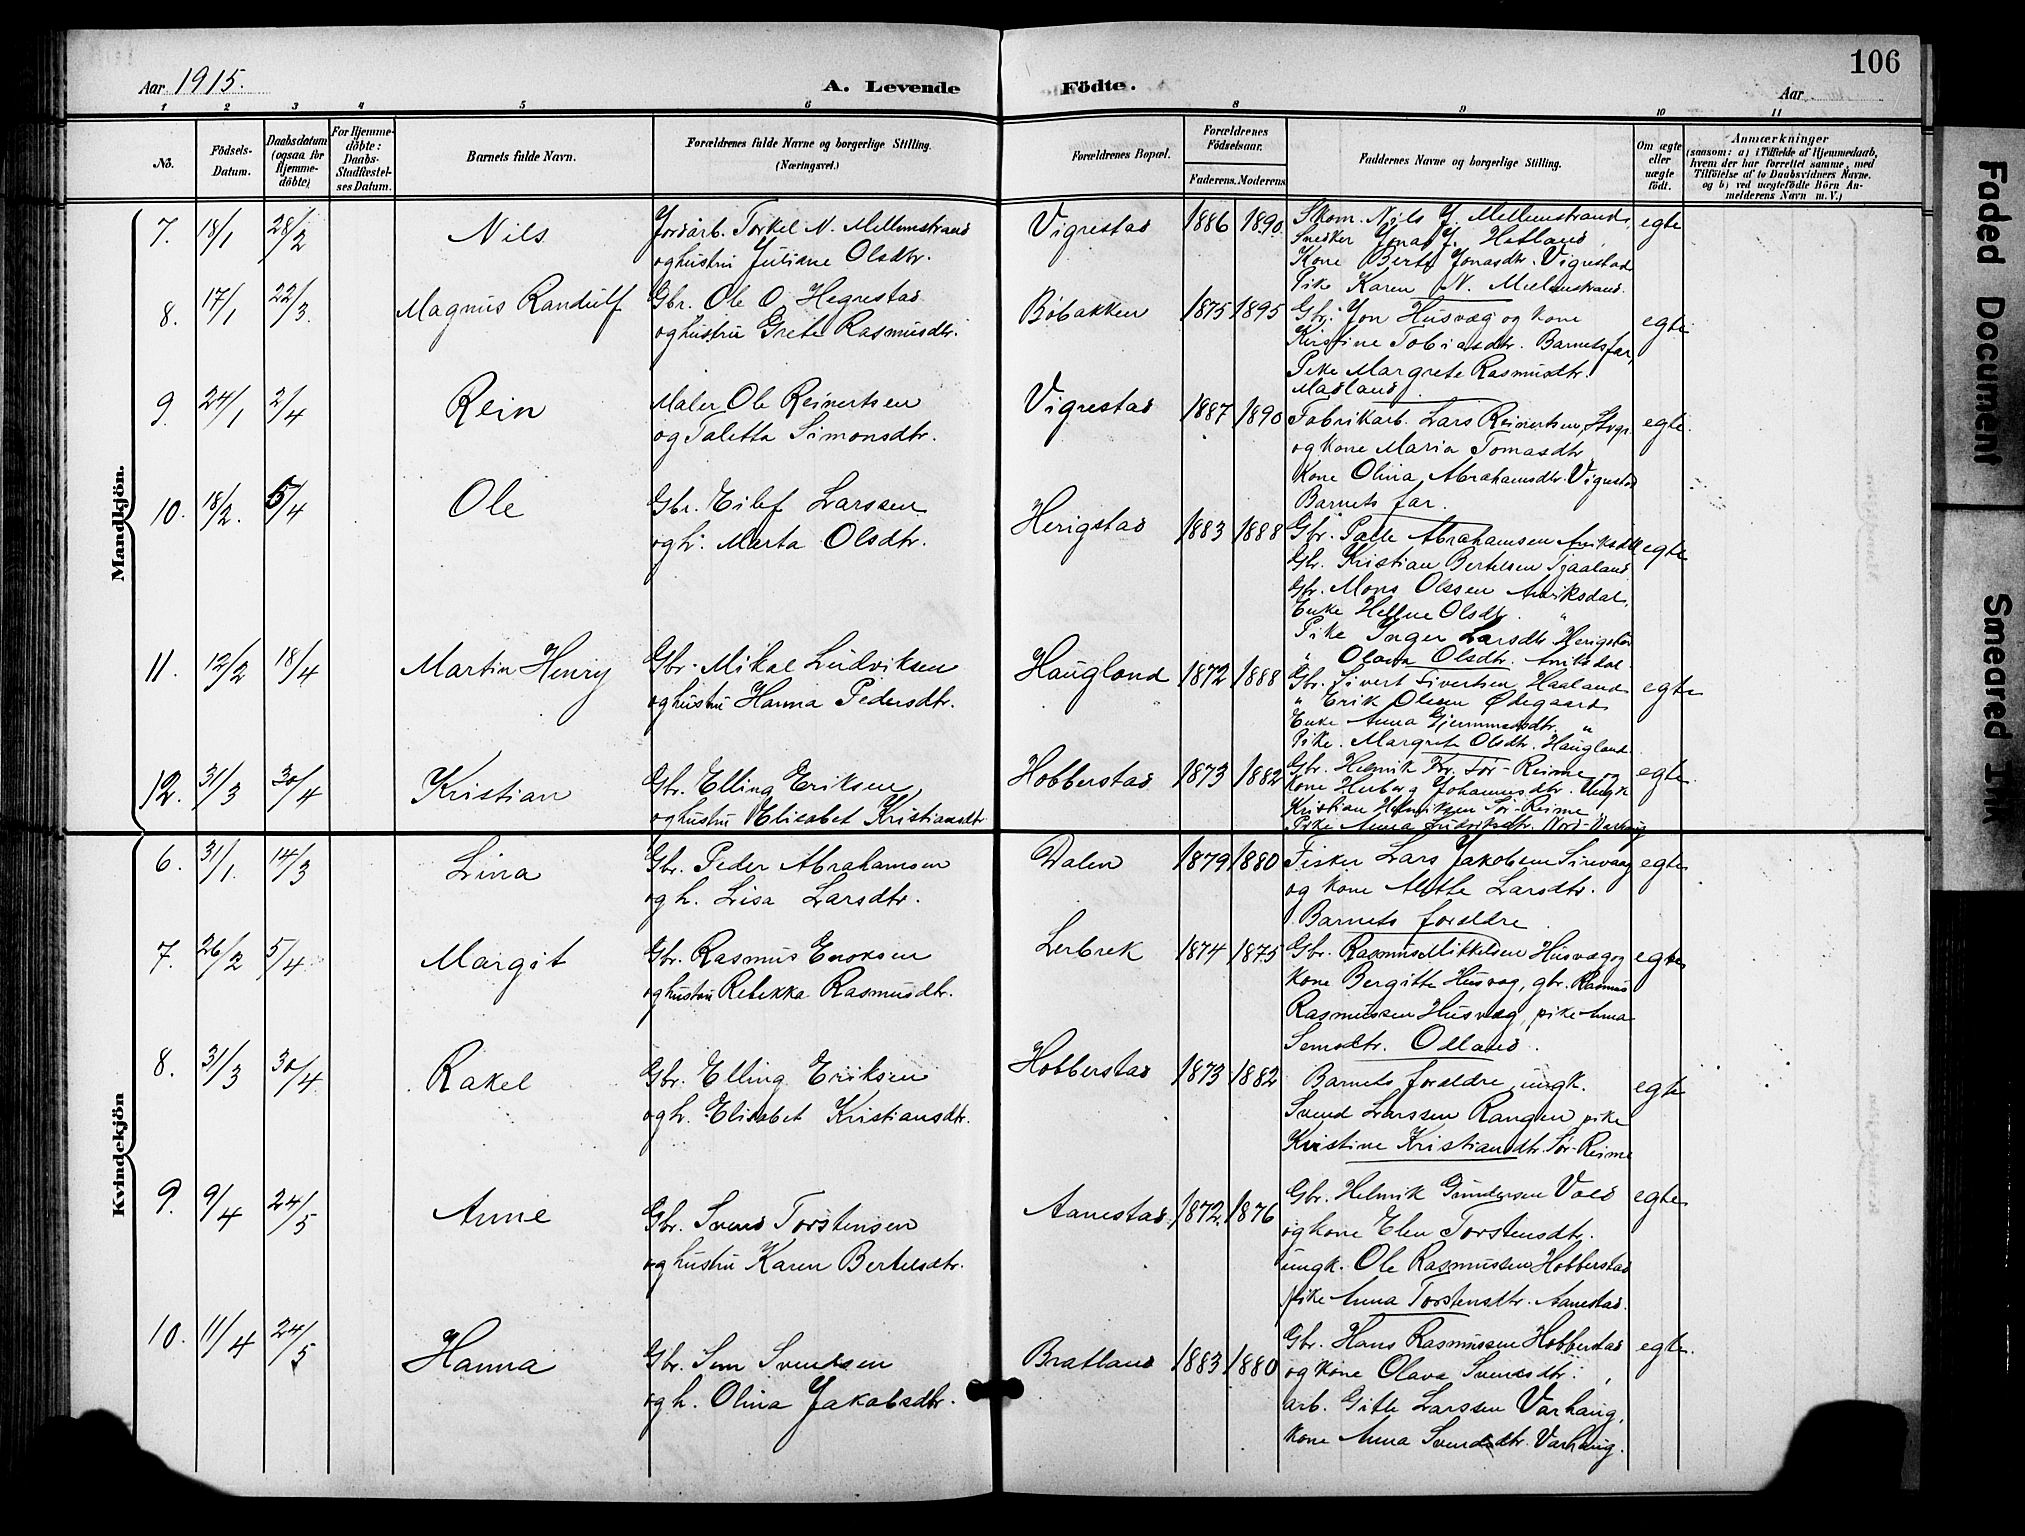 106
Aar 1915.
A. Levende Födte.
Aar
1 2 3 4 5 6 8 9 10 11
No.
Födsels-Datum.
Daabsdatum (ogsaa for Hjemmedöbte)
For Hjemmedöbte: Daabs-Stadfestelses Datum.
Barnets fulde Navn.
Forældrenes fulde Navne og borgerlige Stilling.
(Næringsvei.)
Forældrenes Bopæl.
Forældrenes Födselsaar.
Faderens. Moderens
Faddernes Navne og borgerlige Stilling.
Om ægte eller uægte født.
Anmærkninger
(saasom: a) i Tilfælde af Hjemmedaab,
hvem der har forrettet samme, med
Tilföielse af to Daabsvidners Navne.
og b) ved uægtefödte Börn Anmelderens Navn m. V.)
Mandkjön.
7. 18/1 28/2 Nils Jordarb. Torkel N. Mellemstrand
og hustru Juliane Olsdtr. Vigrestad 1886 1890. egte
Skom. Nils J. Mellemstrand,
Snedker Jonas J. Hetland,
Kone Berte Jonasdtr. Vigrestad
Pike Karen N. Mellemstrand.
8. 17/1 22/3. Magnus Randulf Gbr. Ole O. Hegrestad
og hustru Grete Rasmusdtr. Bøbakken 1875 1895 egte
Gbr. Jon Husvæg og kone
Kirstine Tobiasdtr. Barnets far,
Pike Margrete Rasmusdtr.
Madland.
9. 24/1 2/4 Rein Maler Ole Reinertsen
og Taletta Simonsdtr. Vigrestad 1887 1890 egte.
Fabrikarb. Lars Reinertsen,
og kone Maria Tomasdtr
Kone Olina Abrahamsdtr. Vigrestad
Barnets far.
10. 18/2. 5/4 Ole Gbr. Eilef Larssen
og h. Marta Olsdtr. Herigstad 1883 1888 egte
Gbr. Palle Abrahamsen
Gbr. Kristian Bertelsen Tjaaland
Gbr. Mons Olssen Aniksdal,
Enke Hellene Olsdtr. "
Pike Inger Larsdtr Herigstad
" Olava Olsdtr. Aniksdal.
11. 12/2 18/4 Martin Henry Gbr. Mikal Ludviksen
og hustru Hanna Pedersdtr. Haugland 1872 1888 egte
Gbr. Sivert Sivertsen Haaland
" Erik Olssen Ødegaard
Enke Anna "
Pike. Margrete Olsdtr. Haugland.
12. 31/3 30/4 Kristian Gbr. Elling Eriksen
og hustru Elisabet Kristiansdtr Hobberstad 1873 1882 egte.
Gbr. Helmik Kr. Sør-Reime og
Kone Herborg Johannesdtr. Ungk
Kristian Helmiksen Sør-Reime,
Pike Anna Ludviksdtr. Nord-Varhaug
Kvindekjön
6. 31/1. 14/3 Lina Gbr. Peder Abrahamsen
og h. Lisa Larsdtr. Dalen 1879 1880 egte
Fisker Lars Jakobsen Sirevaag
og kone Alette Larsdtr.
Barnets foreldre.
7. 26/2 5/4 Margit Gbr. Rasmus Enoksen
og hustru Rebekka Rasmusdtr. Lerbrek 1874 1875 egte
Gbr. Rasmus Mikkelsen Husvæg og
kone Bergitte Husvæg, gbr. Rasmus
Rasmussen Husvæg, pike Anna
Semsdtr. Odland.
8. 31/3 30/4 Rakel Gbr. Elling Eriksen
og h. Elisabet Kristiansdtr. Hobberstad 1873 1882 egte
Barnets foreldre, ungk.
Svend Larssen Rangen, pike
Kristine Kristiansdtr. Sør-Reime
9. 9/4 24/5 Anne Gbr. Svend Torstensen
og hustru Karen Bertelsdtr. Aanestad 1872. 1876 egte
Gbr. Helmik Gundersen Vold
og kone Elen Torstensdtr.
ungk. Ole Rasmussen Hobberstad
pike Anna Torstensdtr. Aanestad.
10. 11/4 24/5 Hanna Gbr. Sem Svendsen
og h. Olina Jakobsdtr. Bratland 1883 1880 egte.
Gbr. Hans Rasmussen Hobberstad
og kone Olava Svendsdtr.,
arb. Gitle Larssen Varhaug,
kone Anna Svendsdtr. Varhaug.
Faded Document
Smeared Ink